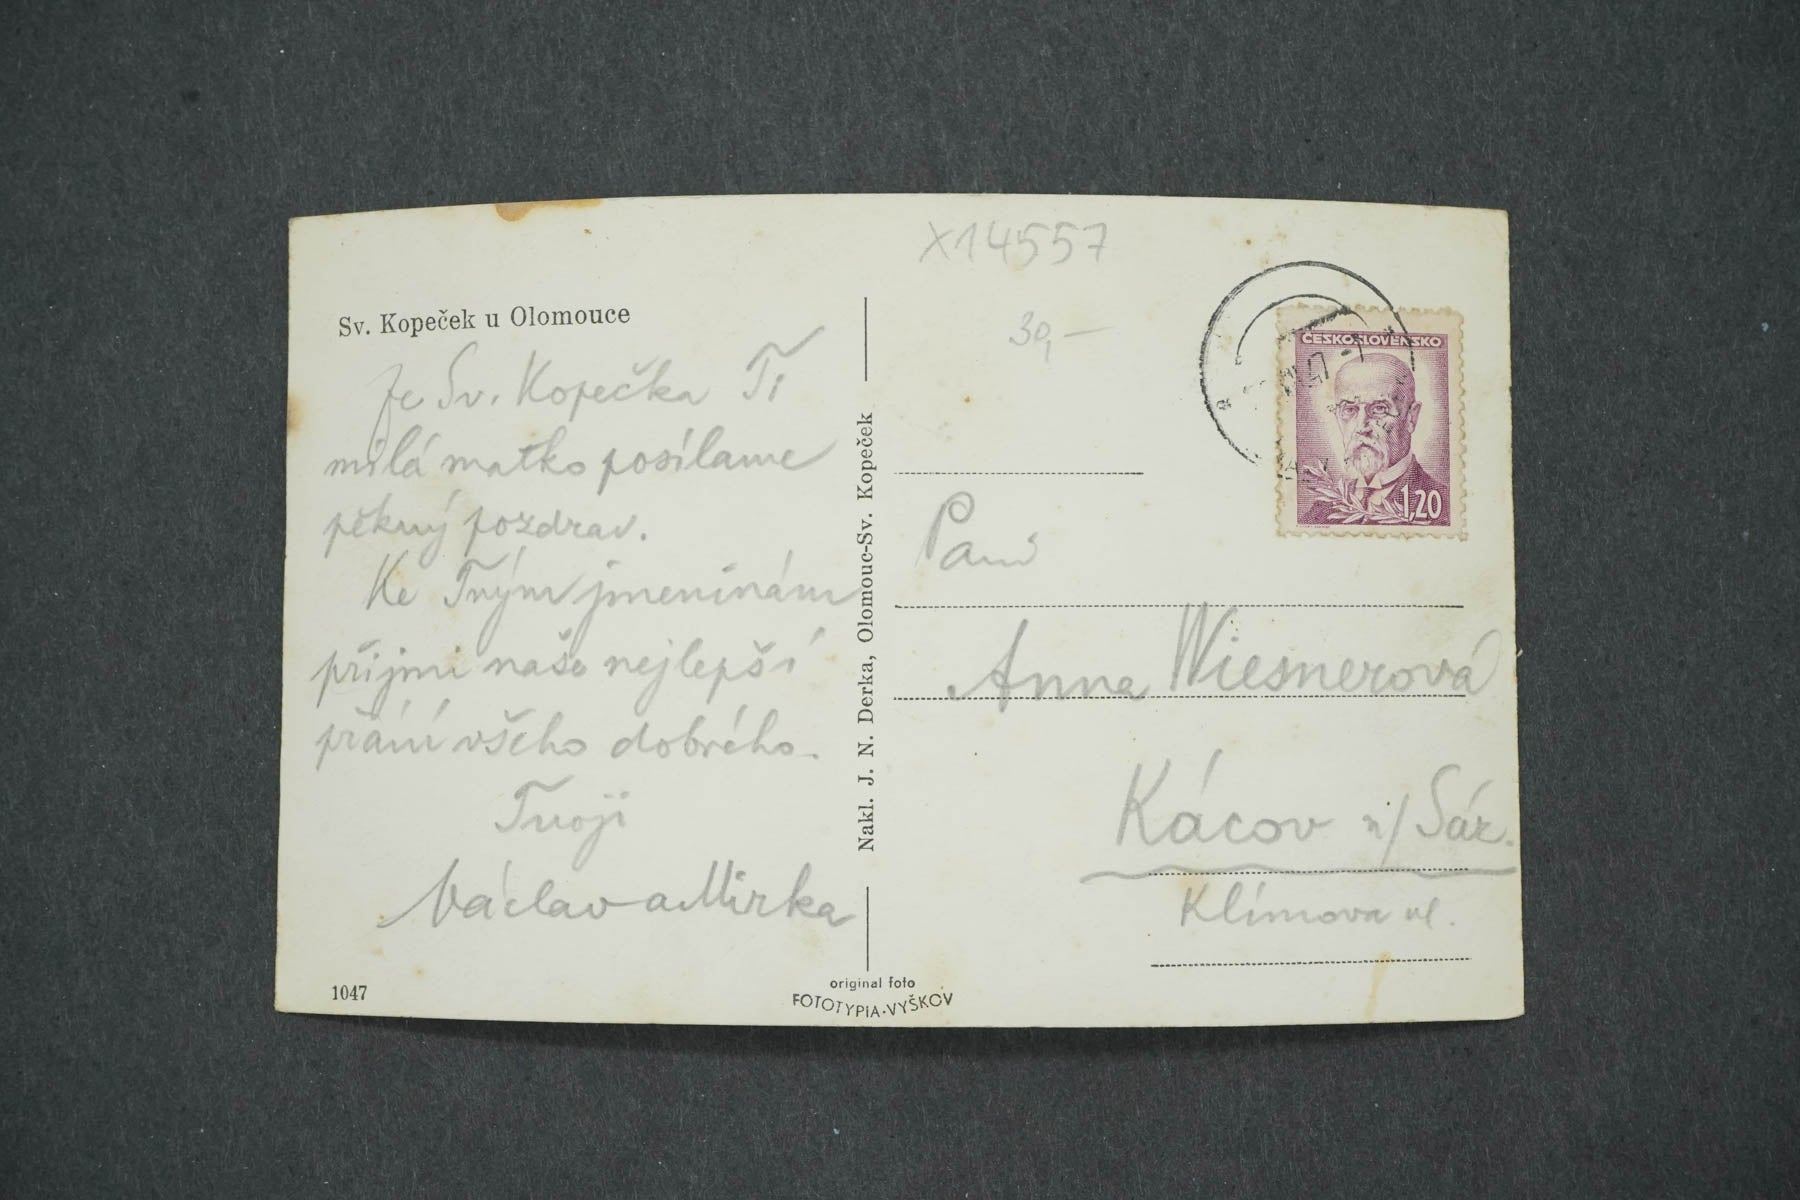 X14557
30,-
Sv. Kopeček u Olomouce
Ze Sv. Kopečka Ti
milá matko posílame
pěkný pozdrav.
Ke Tvým jmeninám
přijmi naše nejlepší
přání všeho dobrého.
Tvoji
Václav a Mirka
1047
Nakl. J. N. Derka, Olomouc-Sv. Kopeček
original foto
FOTOTYPIA-VYŠKOV
ČESKOSLOVENSKO
47-7
1,20
Paní
Anna Wiesnerová
Kácov n/ Sáz.
Klímova ul.